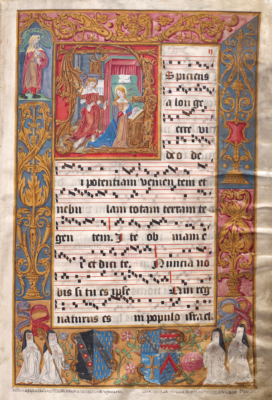 Spiciens
a lon ge,
ecce vi
deo de
i potentiam venien tem et
nebu lam totam terram te
gen tem. Ite ob viam e
i et dicite. Nuncia no
bis si tu es ipse Qui reg
naturus es in populo israel.